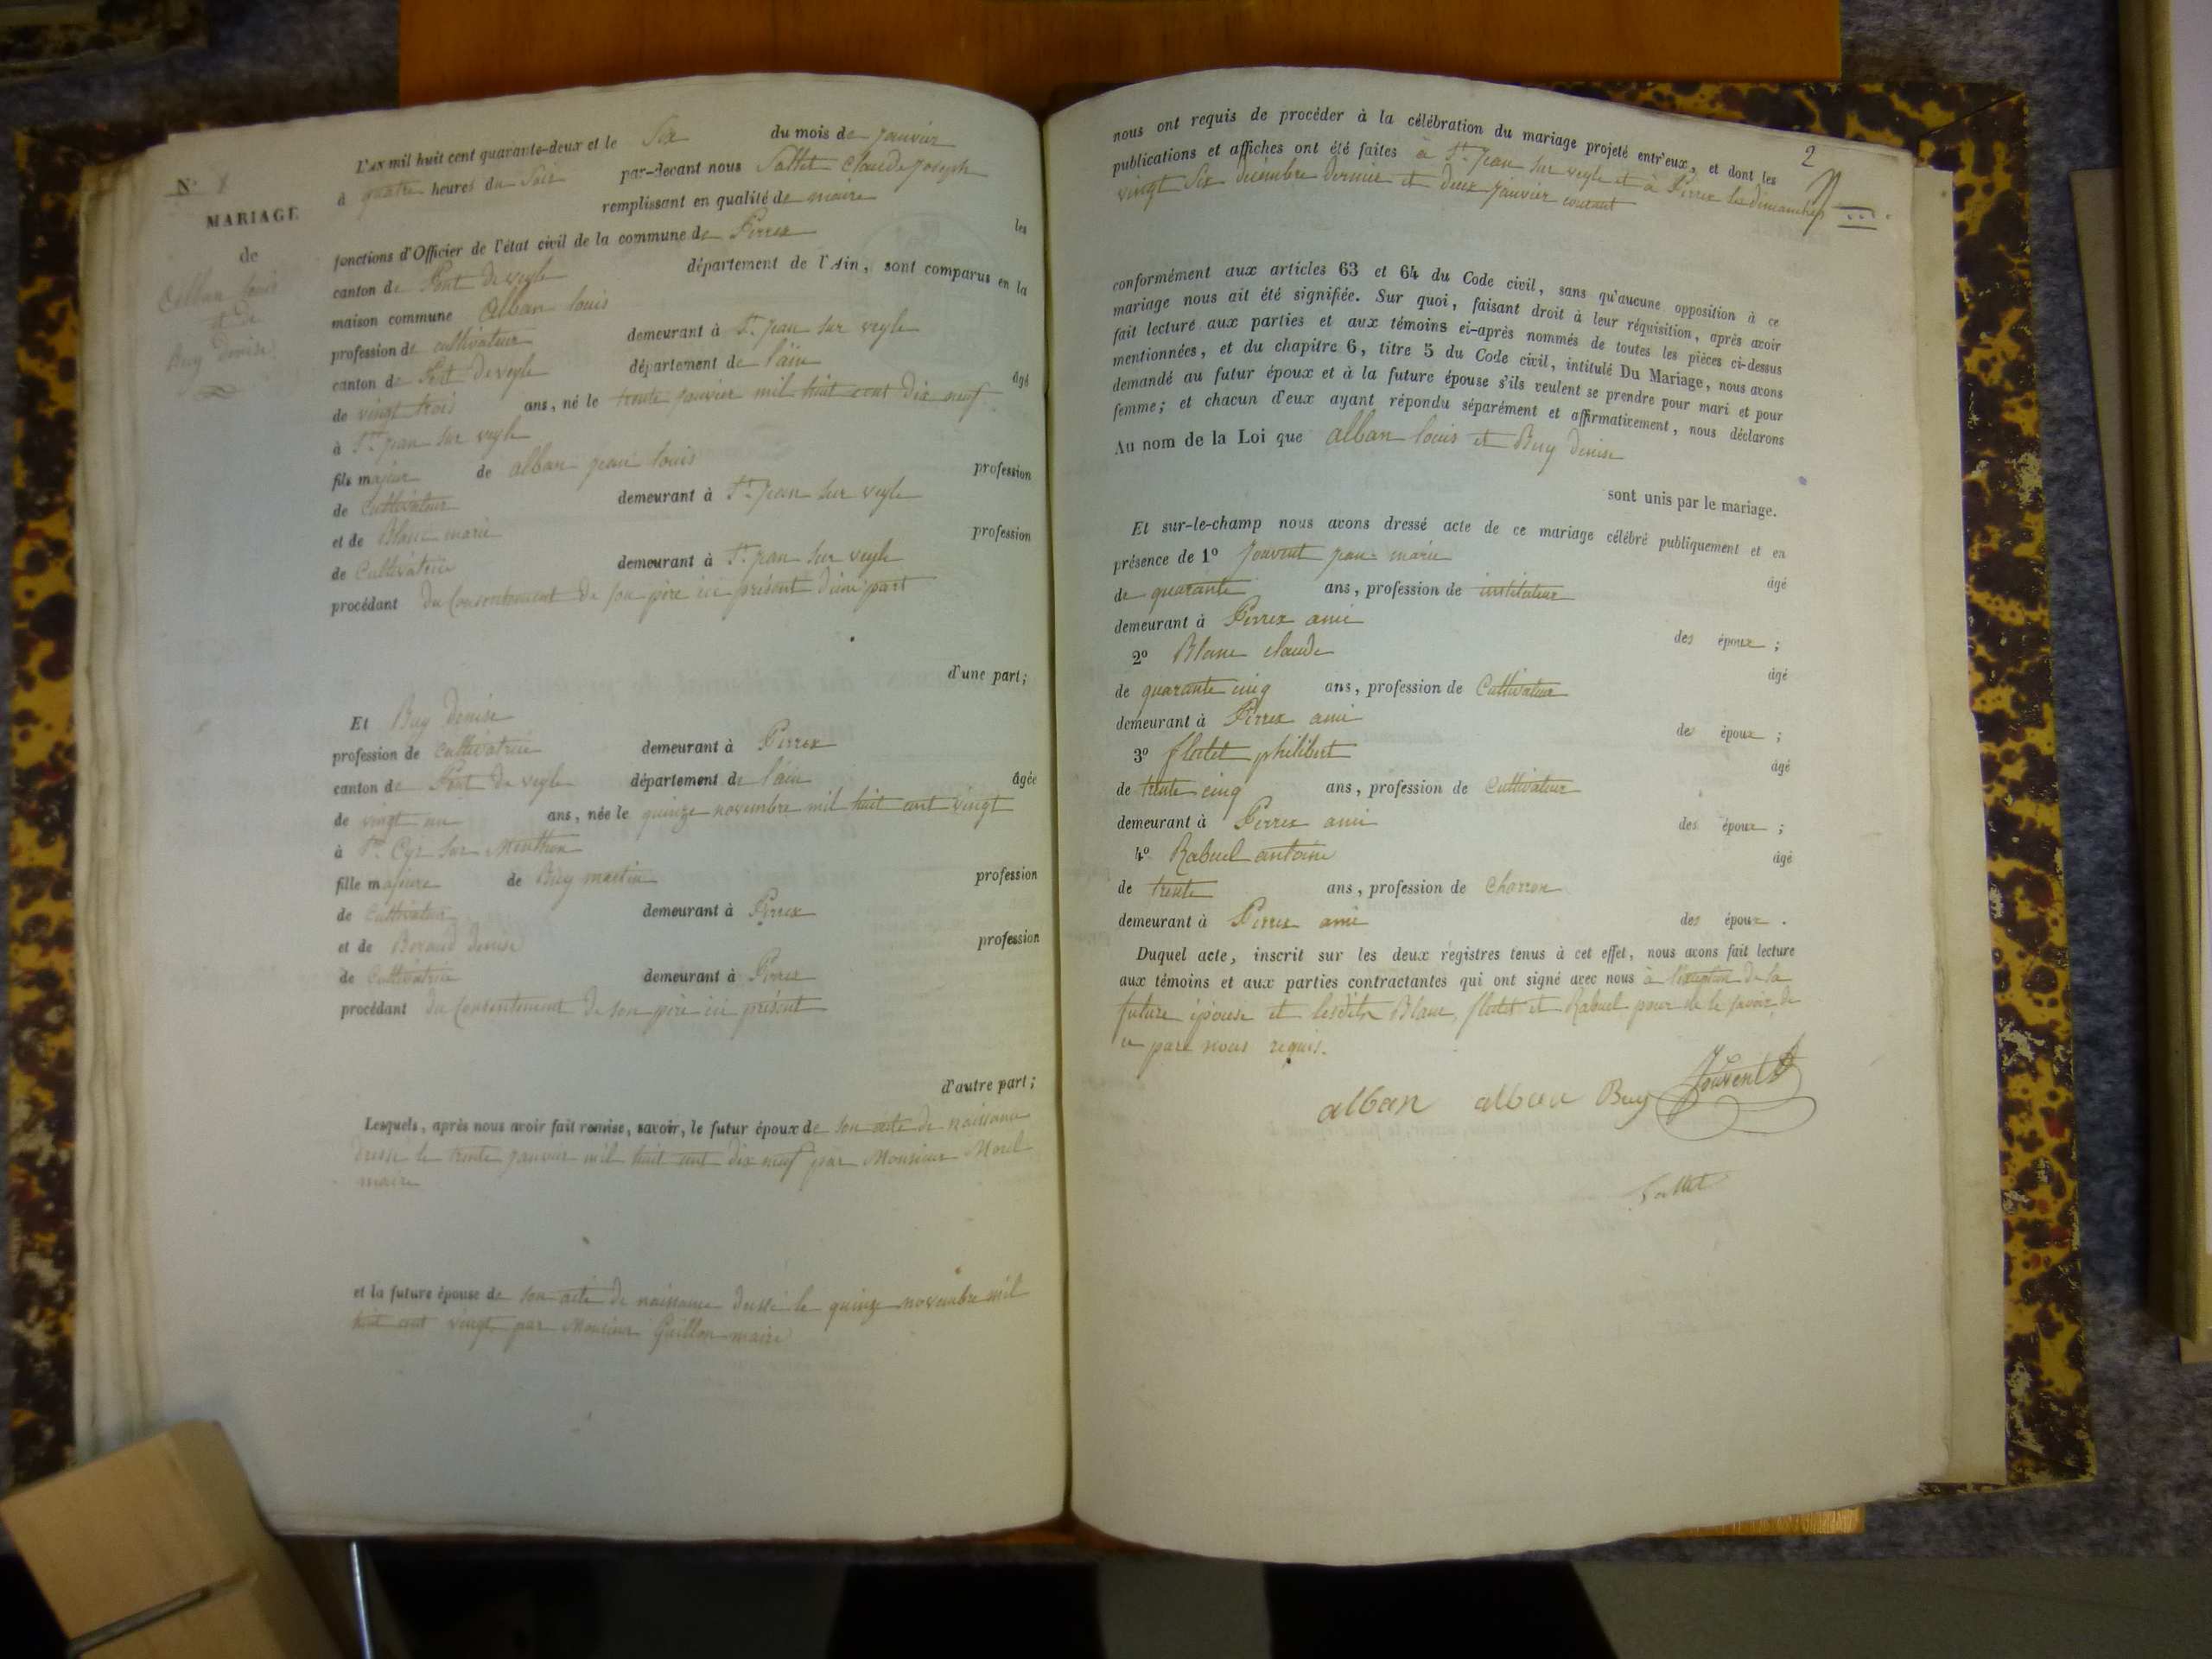 N° 1
MARIAGE
de
Alban louis
et de
Buy denise
L'an mil huit cent quarante-deux et le Six du mois de janvier
à quatre heures du Soir par-devant nous Sallet Claude joseph
remplissant en qualité de maire les
fonctions d'Officier de l'état civil de la commune de Perrex
canton de Pont de veyle département de l'Ain, sont comparus en la
maison commune Alban louis
profession de cultivateur demeurant à St. jean sur veyle
canton de Pont de veyle département de l'ain âgé
de vingt trois ans, né le trente janvier mil huit cent dix neuf
à St. jean sur veyle
fils majeur de alban jean louis profession
de Cultivateur demeurant à St. jean sur veyle
et de Blanc marie profession
de Cultivatrice demeurant à St. jean sur veyle
procédant du Consentement de son père ici présent d'une part
d'une part;
Et Buy denise
profession de cultivatrice demeurant à Perrex
canton de Pont de veyle département de l'ain âgée
de vingt un ans, née le quinze novembre mil huit cent vingt
à St. Cyr sur Menthon
fille majeure de Buy martin profession
de Cultivateur demeurant à Perrex
et de Beraud denise profession
de Cultivatrice demeurant à Perrex
procédant du Consentement de son père ici présent
d'autre part;
Lesquels, après nous avoir fait remise, savoir, le futur époux de son acte de naissance
dressé le trente janvier mil huit cent dix neuf par Monsieur Morel
maire
et la future épouse de son acte de naissance dressé le quinze novembre mil
huit cent vingt par Monsieur Guillon maire
2
nous ont requis de procéder à la célébration du mariage projeté entr'eux, et dont les
publications et affiches ont été faites à St. jean sur veyle et à Perrex les dimanches
vingt Six décembre dernier et deux janvier courant
conformément aux articles 63 et 64 du Code civil, sans qu'aucune opposition à ce
mariage nous ait été signifiée. Sur quoi, faisant droit à leur réquisition, après avoir
fait lecture aux parties et aux témoins ci-après nommés de toutes les pièces ci-dessus
mentionnées, et du chapitre 6, titre 5 du Code civil, intitulé Du Mariage, nous avons
demandé au futur époux et à la future épouse s'ils veulent se prendre pour mari et pour
femme; et chacun d'eux ayant répondu séparément et affirmativement, nous déclarons
Au nom de la Loi que alban louis et Buy denise
sont unis par le mariage.
Et sur-le-champ nous avons dressé acte de ce mariage célébré publiquement et en
présence de 1° Jouvent jean marie âgé
de quarante ans, profession de instituteur
demeurant à Perrex ami des époux;
2° Blanc claude âgé
de quarante cinq ans, profession de Cultivateur
demeurant à Perrex ami des époux;
3° flutet philibert âgé
de trente cinq ans, profession de Cultivateur
demeurant à Perrex ami des époux;
4° Rabuel antoine âgé
de trente ans, profession de Charron
demeurant à Perrex ami des époux.
Duquel acte, inscrit sur les deux régistres tenus à cet effet, nous avons fait lecture
aux témoins et aux parties contractantes qui ont signé avec nous à l'exception de la
future épouse et lesdits Blanc, flutet et Rabuel pour ne le savoir de
ce par nous requis.
alban alban Buy Jouvent
Sallet